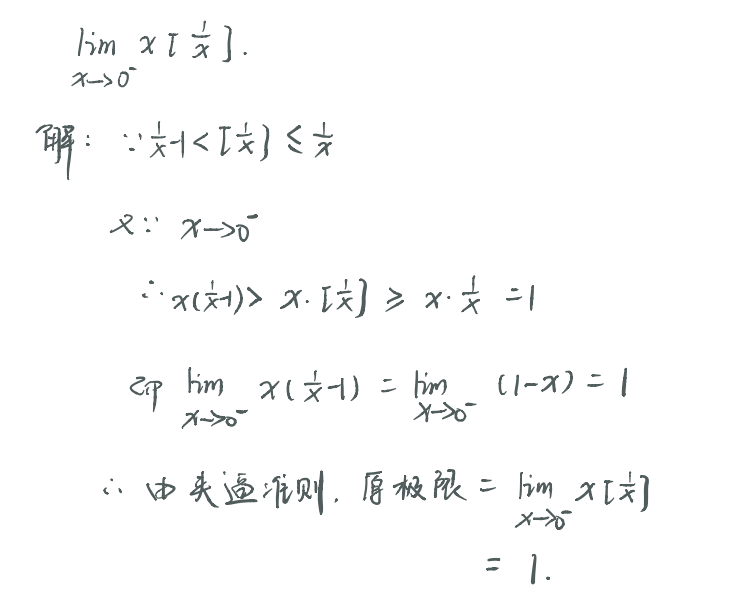 lim x→0⁻ x[1/x].
解: ∵ 1/x-1<[1/x]≤1/x
又∵ x→0⁻
∴ x(1/x-1)> x·[1/x] ≥ x·1/x =1
即 lim x→0⁻ x(1/x-1) = lim x→0⁻ (1-x) = 1
∴ 由夹逼准则, 原极限 = lim x→0⁻ x[1/x]
= 1.